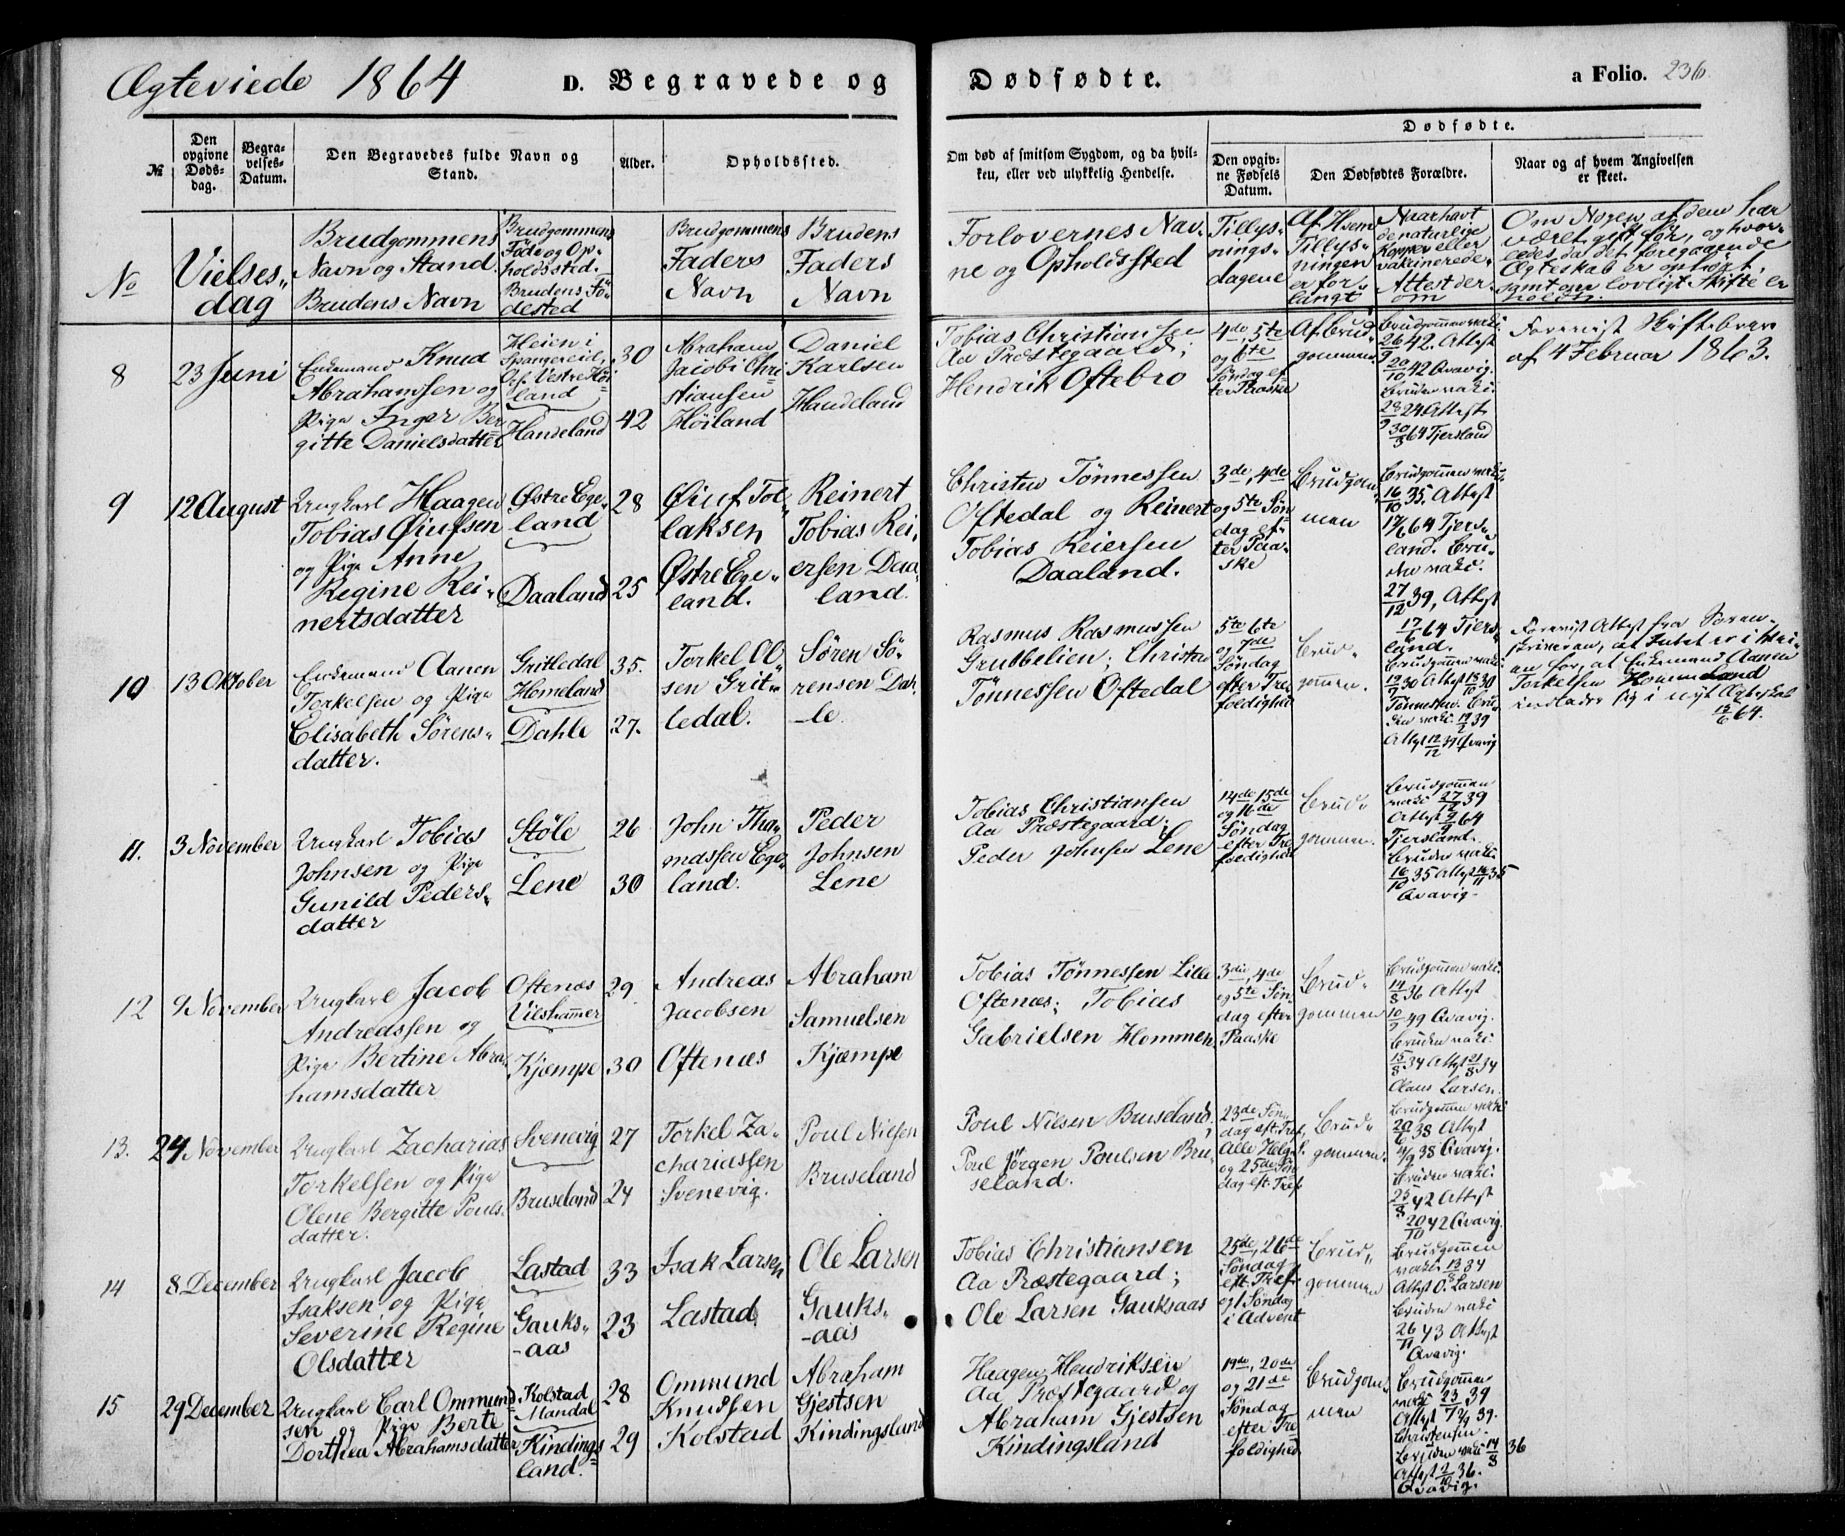 Ægteviede 1864
D. Begravede og Dødfødte.
a Folio. 236.
№
Den opgivne Dødsdag.
Begravelses-Datum.
Den Begravedes fulde Navn og Stand.
Alder.
Opholdssted.
Om død af smitsom Sygdom, og da hvilken, eller ved ulykkelig Hendelse.
Dødfødte.
Den opgivne Fødsels Datum.
Den Dødfødtes Forældre.
Naar og af hvem Angivelsen er skeet.
No
Vielses-dag
Brudgommens Navn og Stand.
Brudens Navn
Brudgommens Føde og Opholdssted.
Brudens Fødested
Brudgommens Faders Navn
Brudens Faders Navn
Forlovernes Navne og Opholdssted
Tillysningsdagene
Af Hvem Tillysningen er forlangt
Naar havt de naturlige Kopper eller vakcinerede. Attest derom
Om Nogen af dem har været gift før, og hvorledes da det foregaaende Ægteskab er ophævt, samt om lovligt Skifte er holdt.
8
23 Juni
Enkemand Knud
Abrahamssen og
Pige Inger Ber
gitte Danielsdatter
Heien i
Svangereid,
Vestre Høi
land
Handeland
30
42
Abraham
Jacobi Chri
stiansen
Høiland
Daniel
Karlsen
Handeland
Tobias Christiansen
Aa Præstegaard;
Hendrik Oftebro
4de, 5te
og 6te
Søndag ef
ter Paaske
Af Brud
gommen
Brudgommen vakc:
26/9 42. Attest
20/10 42 Qvavig.
Bruden vakc:
28/9 24 Attest
30/3 64 Tjersland
Forevist Skiftebrev
af 4 Februar 1863.
9
12 August
Ungkarl Haagen
Tobias Øiufsen
og Pige Anne
Regine Rei-
nertsdatter
Østre Ege-
land
Daaland
28
25
Øiuf Tol-
laksen
Østre Ege-
land.
Reinert
Tobias Rei-
ersen Daa-
land.
Christen Tønnessen
Oftedal og Reinert
Tobias Reiersen
Daaland.
3de, 4de
og 5te Søn
dag ef-
ter Paa-
ske
Brudgom-
men
Brudgommen vakc:
16/10 35. Attest
17/6 64 Tjers-
land. Bru-
den vakc:
27/12 39, Attest
17/6 64 Tjers-
land.
10
13 Oktober
Enkemand Aanen
Torkelsen og Pige
Elisabeth Sørens-
datter.
Gritledal
Homeland
Dahle
35.
27.
Torkel Ol-
sen Grit-
ledal.
Søren Sø-
rensen Dah-
le.
Rasmus Rasmussen
Grubbelien; Christen
Tønnessen Oftedal
5te 6te
og 7de
Søndag
efter Tre
foldighed
Brud-
gommen.
Brudgommen vakc:
19/9 30 Attest 13/10 30
Tønnesen. Bru-
den vakc: 19/2 39
Attest 12/12 39 Qvavig
Forevist Attest fra Soren-
skriveren, at Intet er i Vei-
en for, at Enkemand Aanen
Torkelsen Hommeland
indlader sig i nyt Ægteskab
15/6 64.
11.
3 November
Ungkarl Tobias
Johnsen og Pige
Gunild Peders-
datter
Støle
Lene
26
30
John Tha-
mdssen Ege-
land.
Peder
Johnsen
Lene
Tobias Christiansen
Aa Præstegaard;
Peder Johnsen Lene
14de, 15de
og 16de
Søndag
efter Tre
foldighed
Brud-
gommen.
Brudgommen
vakc 27/12 39
Attest 64
Tjersland.
Bruden vakc:
16/10 35 Attest 35
Qvavig.
12
9 November
Ungkarl Jacob
Andreassen og
Pige Bertine Abra
hamsdatter
Oftenæs
Vilshammer
Kjæmpe
29
30
Andreas
Jacobsen
Oftenæs
Abraham
Samuelsen
Kjæmpe
Tobias Tønnessen Lille
Oftenæs; Tobias
Gabrielsen Hommen
3die, 4de
og 5te Søn
dag efter
Paaske
Brud-
gommen
Brudgommen vakc:
14/8 36 Attest
10/9 49 Qvavig.
Bruden vakc:
15/8 34 Attest 21/8 34
Olaus Larsen.
13.
24 November
Ungkarl Zacharias
Torkelsen og Pige
Olene Bergitte Pouls-
datter.
Svenevig
Bruseland
27
24
Torkel Za-
chariassen
Svenevig.
Poul Nilsen
Bruseland
Poul Nilsen Bruseland;
Poul Jørgen Poulsen Bru-
seland.
23de Søn-
dag eft. Tref.
Alle Helg.
og 25de Søn
dag eft. Tref
Brud-
gommen.
Brudgommen vakc:
20/6 38 Attest
4/9 38 Qvavig.
Bruden vakc:
23/8 42 Attest
20/10 42 Qvavig.
14
8 December
Ungkarl Jacob
Isaksen og Pige
Severine Regine
Olsdatter
Lastad
Gauks-
-aas
33
23
Isak Larsen
Lastad
Ole Larsen
Gauks-
-aas
Tobias Christiansen
Aa Præstegaard;
Ole Larsen Gauksaas
25de, 26de
Søndag
eft. Tref
og 1 Søndag
i Advent
Brud-
gommen
Brudgommen
vakc: 13/8 34
Attest O. Larsen
Bruden vakc
26/11 43 Attest
Qvavig.
15
29 December
Ungkarl Carl Ommund
sen og Pige Berte
Dorthea Abrahamsdatter
Kolstad
Mandal
Kindings
land.
28
29
Ommund
Knudsen
Kolstad
Abraham
Gjestsen
Kindingsland
Haagen Hendriksen
Aa Præstegaard og
Abraham Gjestsen
Kindingsland
19de, 20de
og 21de
Søndag
efter Tre
foldighed
Brudgom-
men
Brudgommen
vakc 23/7 39
Attest 12/9 39.
Christensen.
Bruden vakc 14/8 36
Attest 2/10 36.
Qvavig.